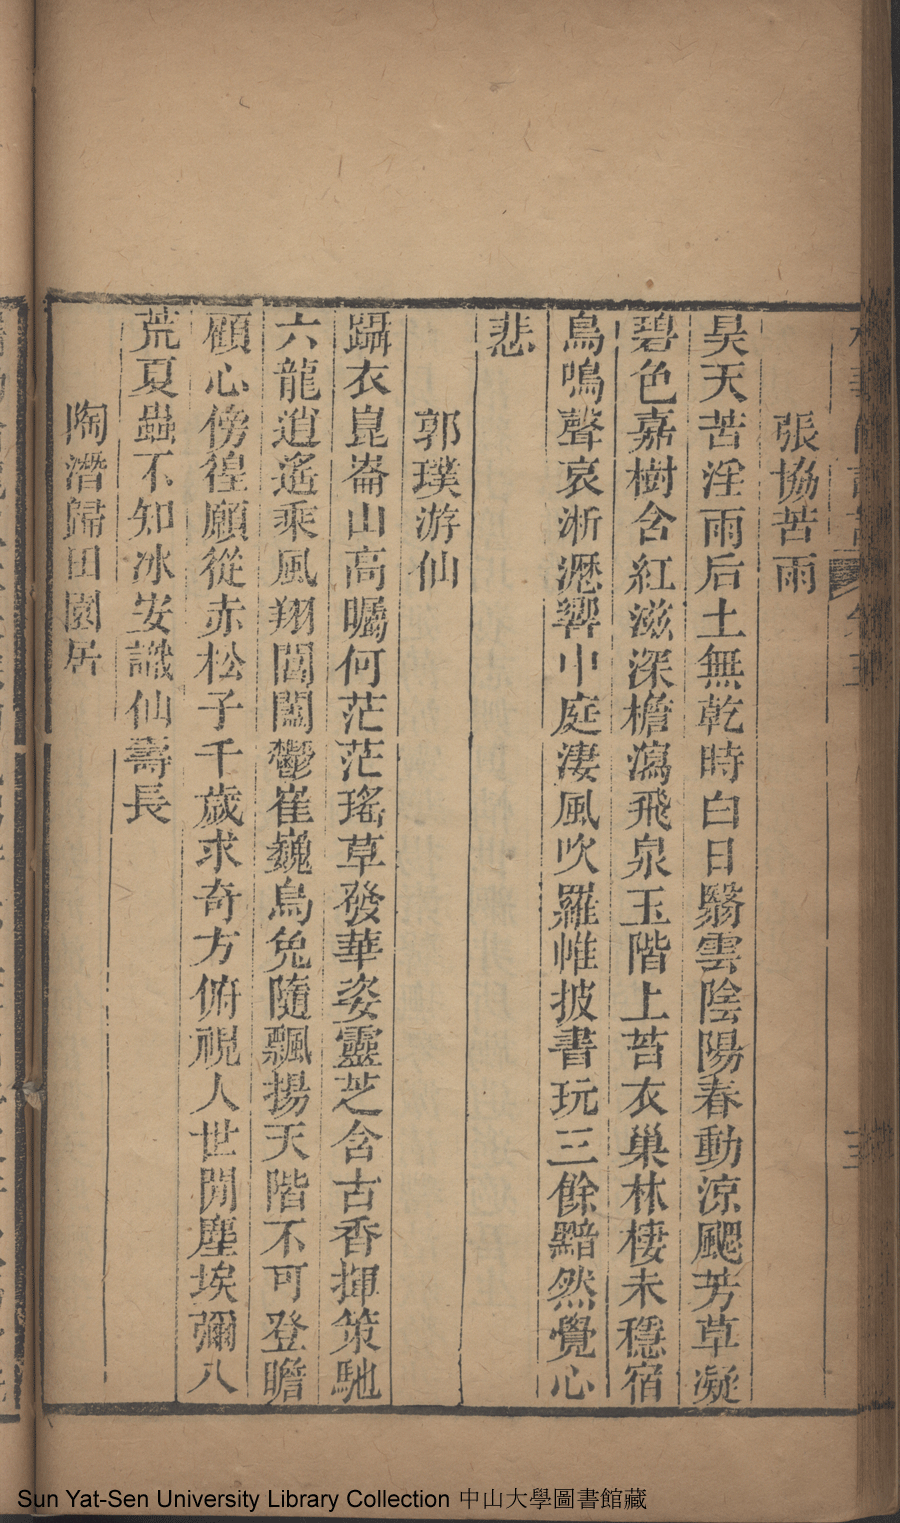 張協苦雨
昊天苦淫雨后土無乾時白日翳雲陰陽春動涼颸芳草凝
碧色嘉樹含紅滋深檐瀉飛泉玉階上苔衣巢林棲未穩宿
鳥鳴聲哀淅瀝響中庭淒風吹羅帷披書玩三餘黯然覺心
悲
郭璞游仙
躡衣崑崙山高矚何茫茫瑤草發華姿靈芝含古香揮策馳
六龍逍遙乘風翔閶闔鬱崔巍烏兔隨飄揚天階不可登瞻
顧心傍徨願從赤松子千歲求奇方俯視人世閒塵埃彌八
荒夏蟲不知冰安識仙壽長
陶潛歸田園居
Sun Yat-Sen University Library Collection 中山大學圖書館藏